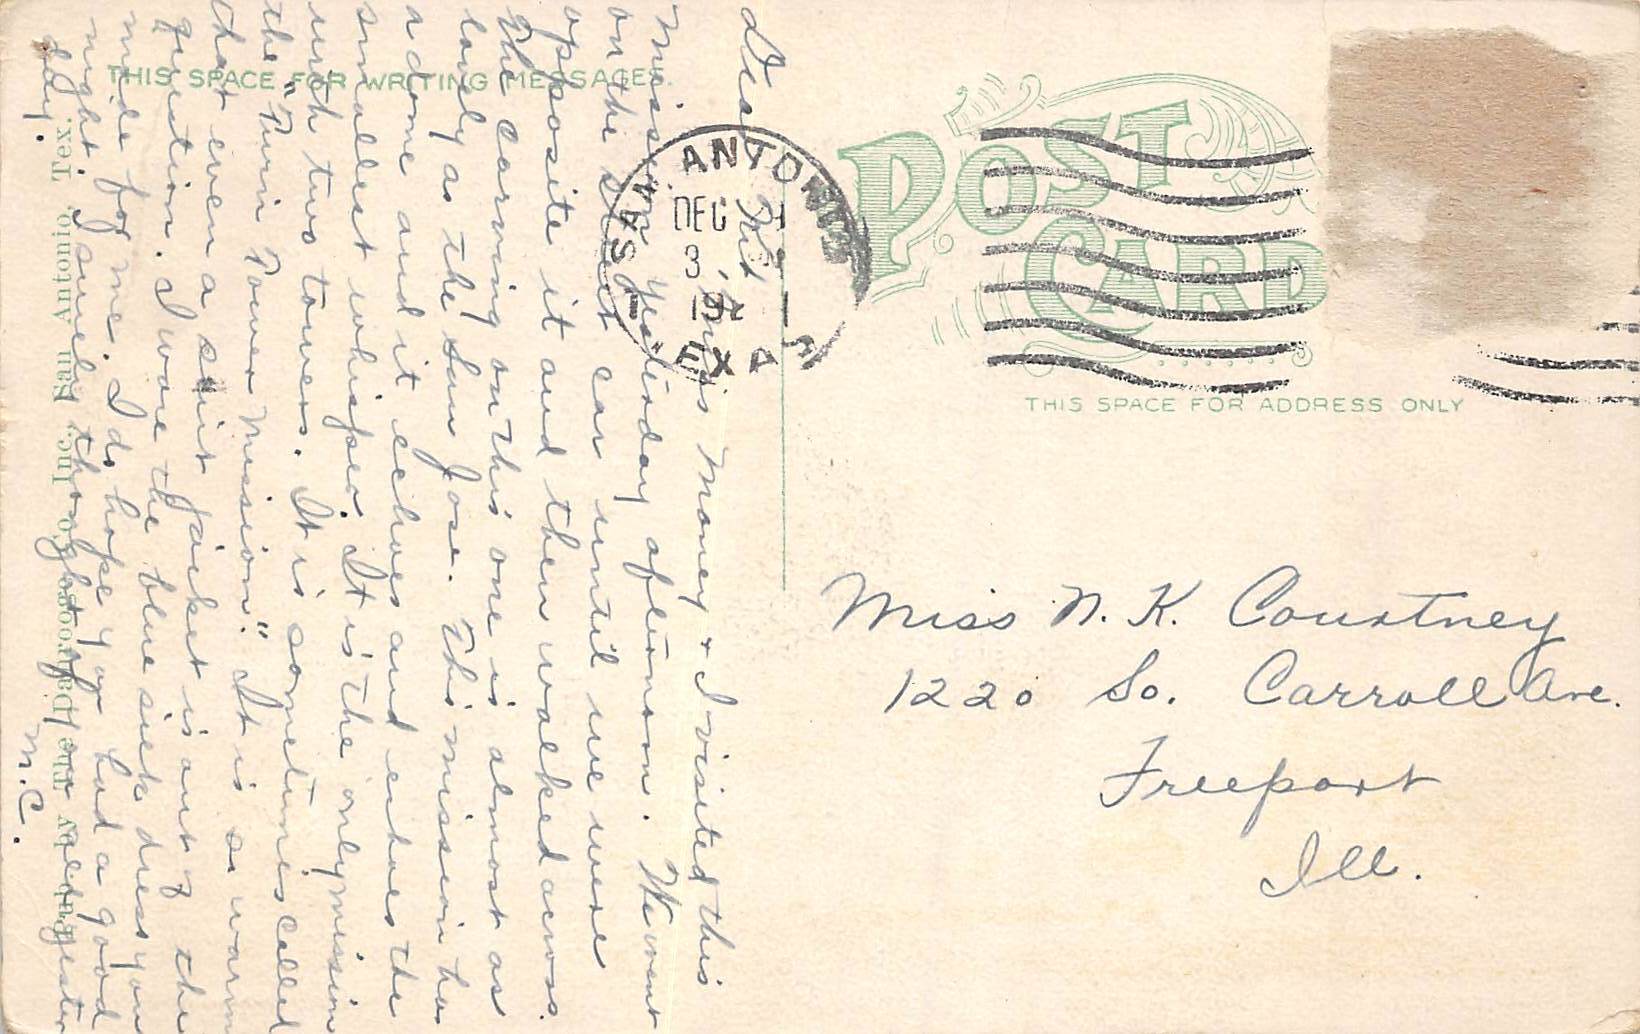 THIS SPACE FOR WRITING MESSAGES
POST
CARD
THIS SPACE FOR ADDRESS ONLY
SAN ANTONIO
DEC
TEXAS
Dear
Mrs. Money & I visited this
mission yesterday afternoon. We went
on the street car until we were
opposite it and then walked across.
The carving on this one is almost as
lovely as the San Jose. This mission has
a dome and it echoes and echoes the
smallest whisper. It is the only mission
with two towers. It is sometimes called
the "Twin Tower Mission." It is so warm
that even a suit jacket is out of the
question. I wore the blue silk dress you
made for me. I do hope you had a good
night. I surely thought of you yester
day.
M.C.
Pub. by The Dacrocos Co., Inc., San Antonio, Tex.
Miss N. K. Courtney
1220 So. Carroll Ave.
Freeport
Ill.